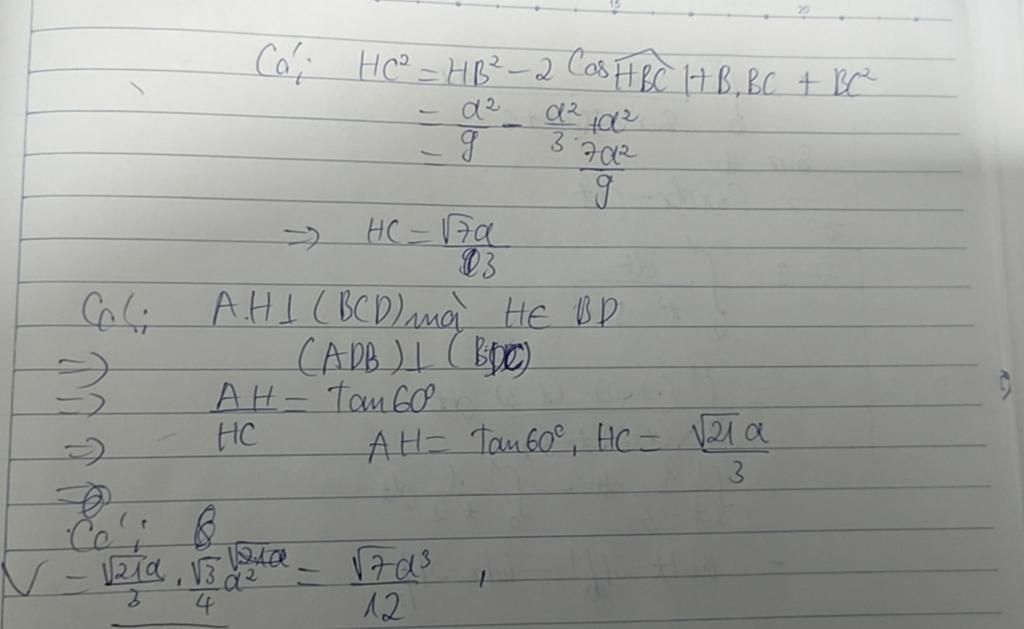 15 20
Có: HC² = HB² - 2 Cos HBC HB.BC + BC²
= a²/9 - a²/3 + a²
= 7a²/9
=> HC = √7a/3
Có: AH ⊥ (BCD) mà H ∈ BD
=> (ADB) ⊥ (BDC)
=> AH/HC = tan60°
=> AH = tan60°. HC = √21a/3
=>
Có:
V = √21a/3 . √3/4 a² = √7a³/12